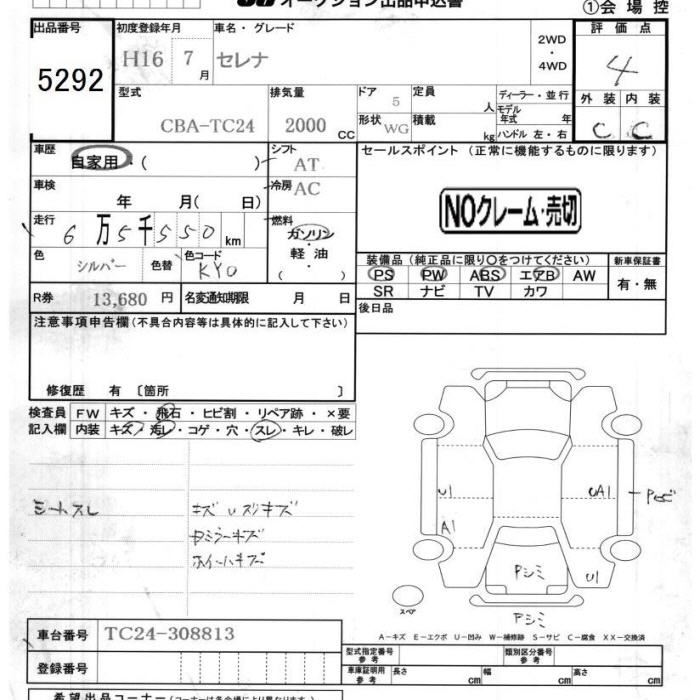 オークション出品申込書
①会場控
出品番号 初度登録年月 車名・グレード 評価点
5292 H16 7月 セレナ 2WD・4WD 4
型式 排気量 ドア 定員 ディーラー・並行 外装 内装
CBA-TC24 2000 CC 5 人 モデル年式 年 C C
形状 WG 積載 kg ハンドル 左・右
車歴 自家用・( ) シフト AT セールスポイント (正常に機能するものに限ります)
車検 年 月( 日) 冷房 AC
NOクレーム・売切
走行 6万5千550km 燃料 ガソリン・軽油・( )
色 シルバー 色替 色コード KY0
装備品 (純正品に限り○をつけてください) 新車保証書
PS PW ABS エアB AW 有・無
SR ナビ TV カワ
R券 13,680円 名変通知期限 月 日
後日品
注意事項申告欄 (不具合内容等は具体的に記入して下さい)
修復歴 有 〔箇所 〕
検査員 FW キズ・飛石・ヒビ割・リペア跡・×要
記入欄 内装 キズ・汚レ・コゲ・穴・スレ・キレ・破レ
シートスレ キズ Uスリキズ
ドアミラーキズ
ホイールキズ
U1 UA1
A1
Pシミ U1
スペア Pシミ
A-キズ E-エクボ U-凹み W-補修跡 S-サビ C-腐食 XX-交換済
車台番号 TC24-308813
型式指定番号 参考 類別区分番号 参考
登録番号 車庫証明用 参考 長さ cm 幅 cm 高さ cm
希望出品コーナー (コーナーは各会場により異なります)